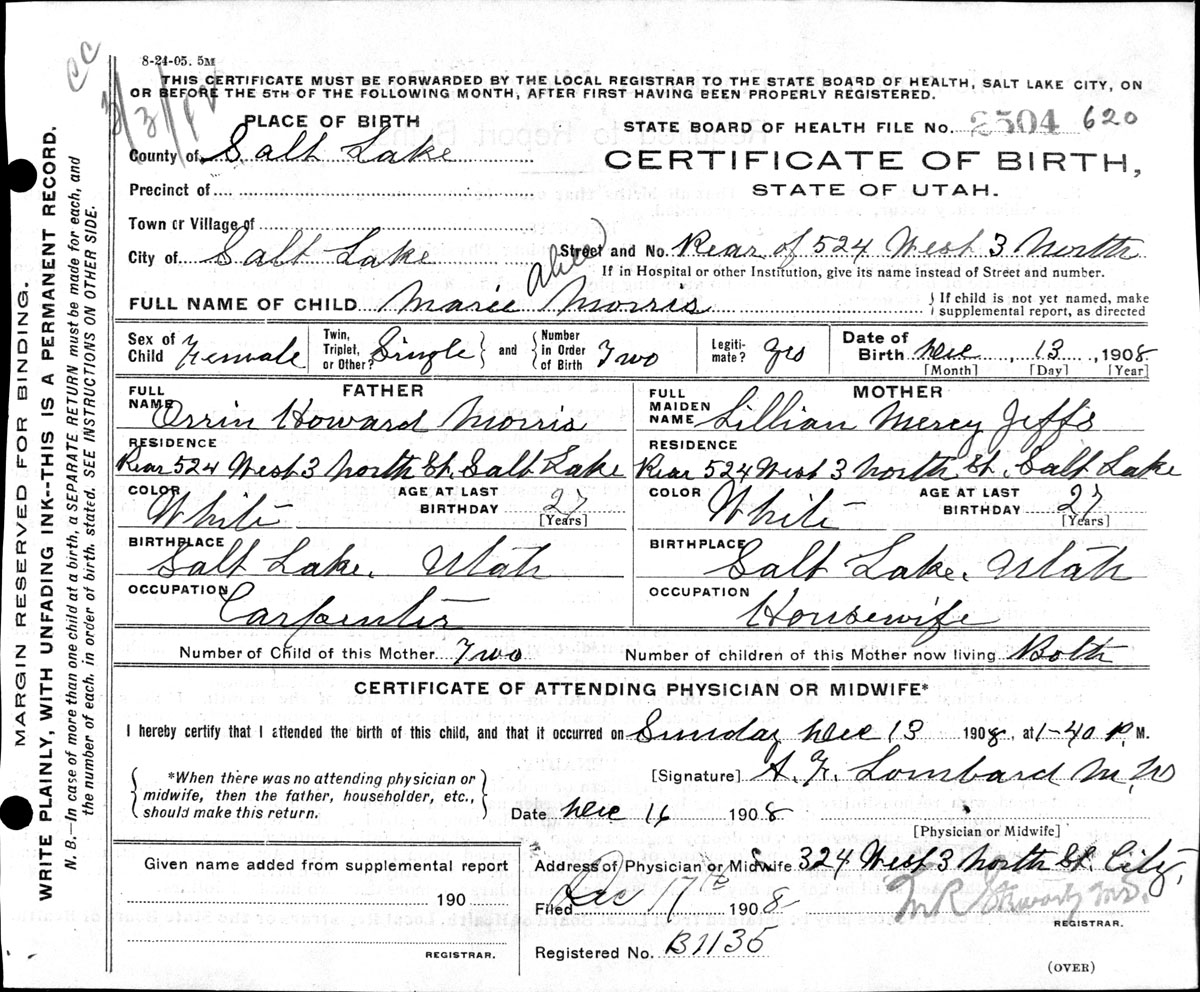 8-24-05. 5M
THIS CERTIFICATE MUST BE FORWARDED BY THE LOCAL REGISTRAR TO THE STATE BOARD OF HEALTH, SALT LAKE CITY, ON
OR BEFORE THE 5TH OF THE FOLLOWING MONTH, AFTER FIRST HAVING BEEN PROPERLY REGISTERED.
PLACE OF BIRTH
STATE BOARD OF HEALTH FILE NO. 2504 620
County of Salt Lake
CERTIFICATE OF BIRTH,
Precinct of
STATE OF UTAH.
Town or Village of
City of Salt Lake
Street and No. Rear of 524 West 3 North
If in Hospital or other Institution, give its name instead of Street and number.
Alice
FULL NAME OF CHILD Marie Morris
} If child is not yet named, make
supplemental report, as directed
Sex of Child Female
Twin, Triplet, or Other? Single } and { Number in Order of Birth Two
Legitimate? Yes
Date of Birth Dec, 13, 1908
[Month] [Day] [Year]
FATHER
FULL NAME Orrin Howard Morris
RESIDENCE
Rear 524 West 3 North St. Salt Lake
COLOR White
AGE AT LAST BIRTHDAY 27
[Years]
BIRTHPLACE
Salt Lake. Utah
OCCUPATION
Carpenter
MOTHER
FULL MAIDEN NAME Lillian Mercy Jeffs
RESIDENCE
Rear 524 West 3 North St. Salt Lake
COLOR White
AGE AT LAST BIRTHDAY 27
[Years]
BIRTHPLACE
Salt Lake. Utah
OCCUPATION
Housewife
Number of Child of this Mother Two
Number of children of this Mother now living Both
CERTIFICATE OF ATTENDING PHYSICIAN OR MIDWIFE*
I hereby certify that I attended the birth of this child, and that it occurred on Sunday Dec 13 1908, at 1-40 P. M.
{ *When there was no attending physician or
midwife, then the father, householder, etc.,
should make this return. }
[Signature] A. F. Lombard M.D.
Date Dec 16 1908
[Physician or Midwife]
Given name added from supplemental report
190
REGISTRAR.
Address of Physician or Midwife 324 West 3 North St. City.
Filed Dec 17th 1908
M R Stewart M.D.
REGISTRAR.
Registered No. B1135
(OVER)
MARGIN RESERVED FOR BINDING.
WRITE PLAINLY, WITH UNFADING INK--THIS IS A PERMANENT RECORD.
N. B.—In case of more than one child at a birth, a SEPARATE RETURN must be made for each, and
the number of each, in order of birth, stated. SEE INSTRUCTIONS ON OTHER SIDE.